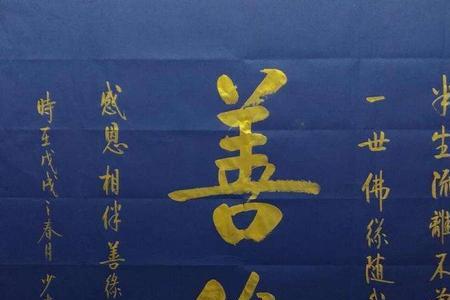 半生流離不
一世佛緣随
善
感恩相伴善緣
時至戊戌之春月 少